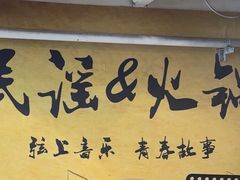 民谣&火锅
弦上音乐 青春故事